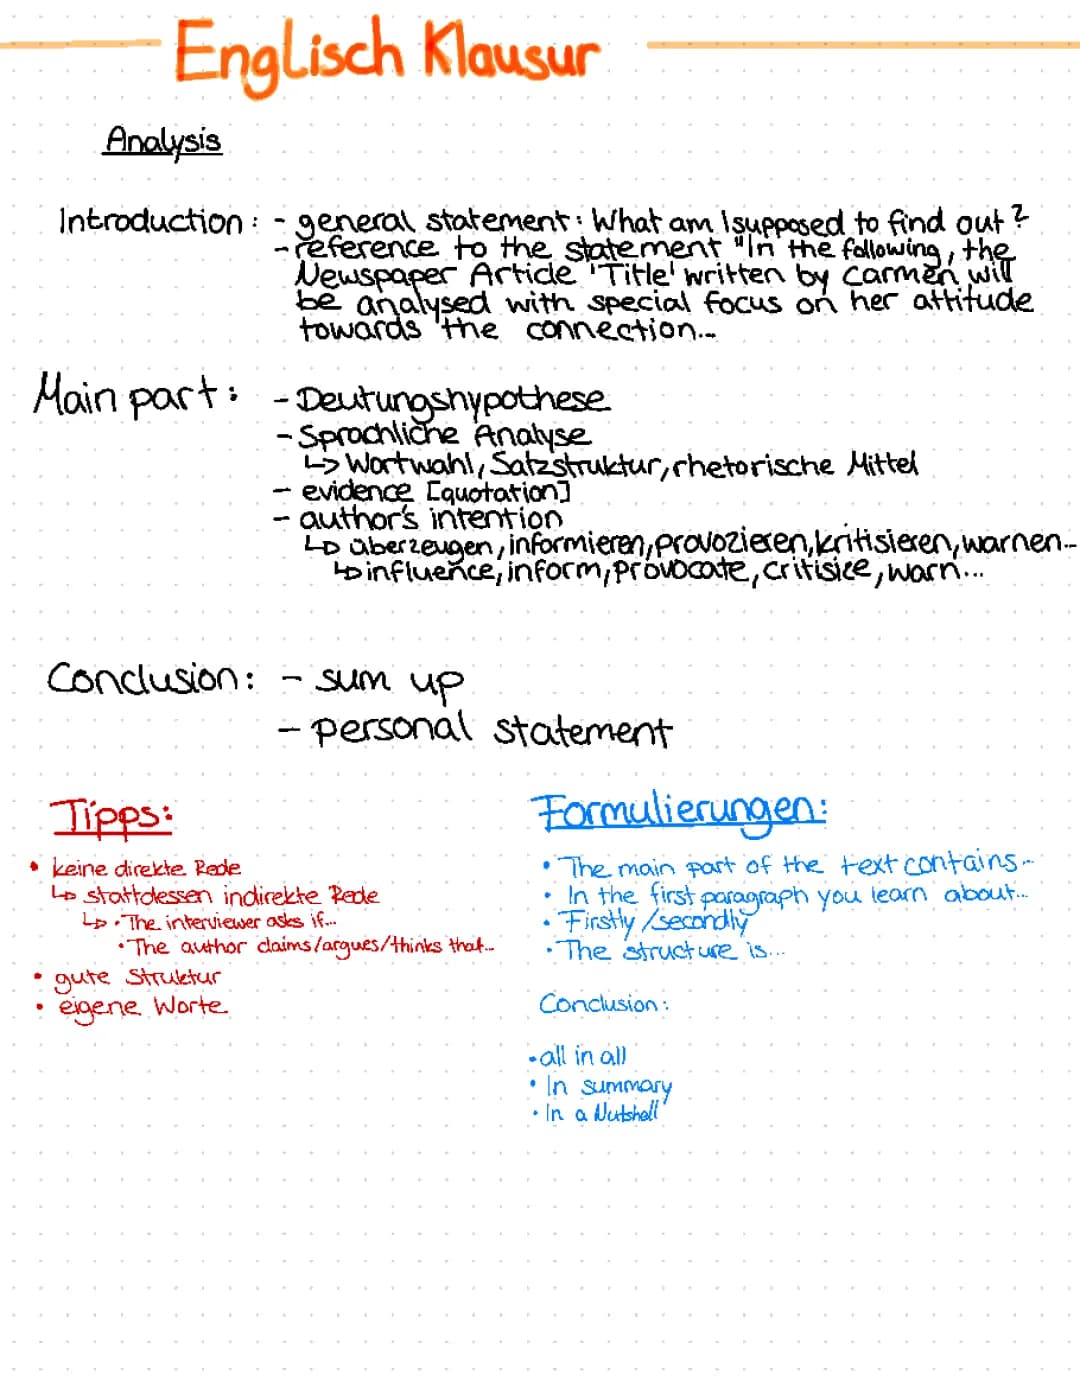 Englisch Klausur
Analysis
Introduction: - general statement: What am I supposed to find out?
- reference to the statement "In the following, the
Newspaper Article 'Title' written by Carmen will
be analysed with special focus on her attitude
towards the connection...
Main part: - Deutungshypothese
- Sprachliche Analyse
↳ Wortwahl, Satzstruktur, rhetorische Mittel
- evidence [quotation]
- author's intention
↳ überzeugen, informieren, provozieren, kritisieren, warnen...
↳ influence, inform, provocate, critisice, warn...
Conclusion: - sum up
- personal statement
Tipps:
• keine direkte Rede
↳ stattdessen indirekte Rede
↳ • The interviewer asks if...
• The author claims/argues/thinks that...
• gute Struktur
• eigene Worte
Formulierungen:
• The main part of the text contains...
• In the first paragraph you learn about...
• Firstly/secondly
• The structure is...
Conclusion:
• all in all
• In summary
• In a Nutshell